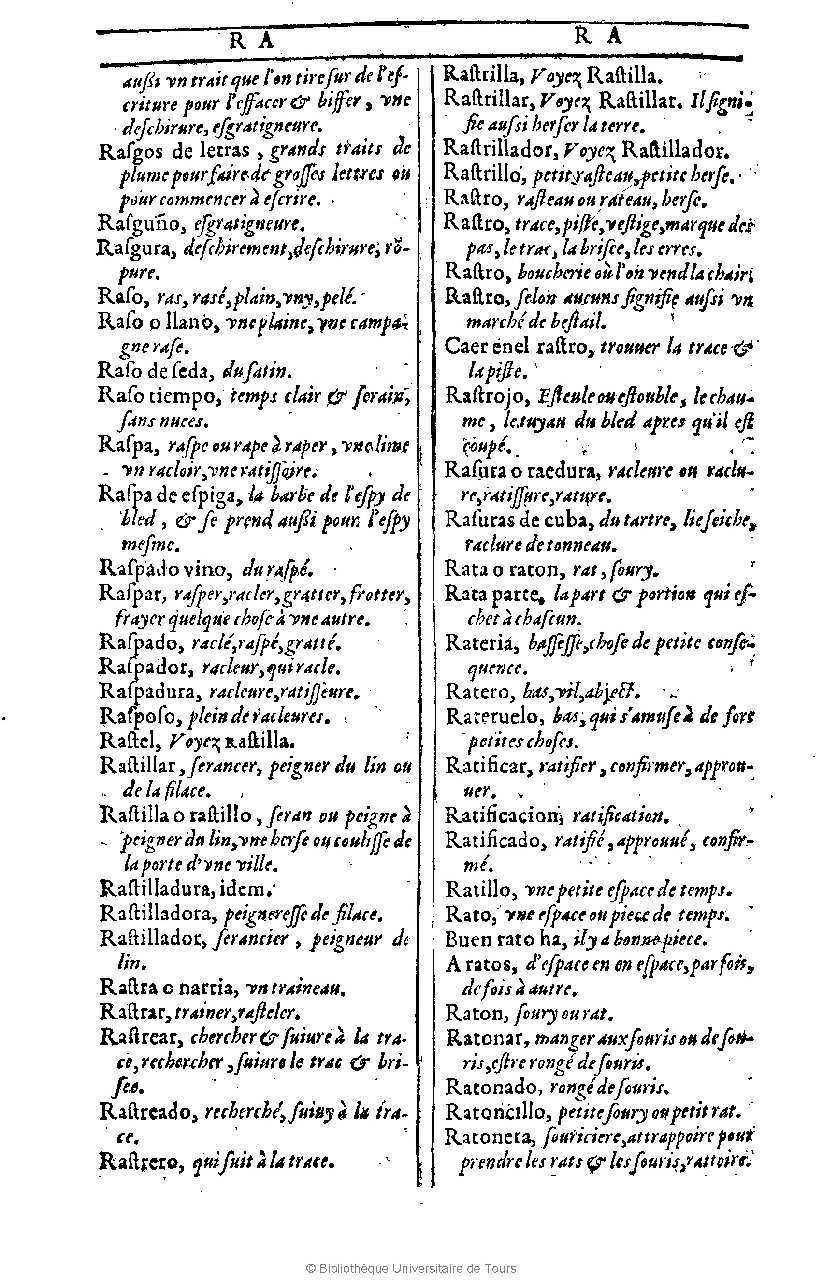 R A
auſsi vn trait que l'on tire ſur de l'eſ-
criture pour l'effacer & biffer, vne
deſchirure, eſgratigneure.
Raſgos de letras, grands traits de
plume pour faire de groſſes lettres ou
pour commencer à eſcrire.
Raſguño, eſgratigneure.
Raſgura, deſchirement, deſchirure, rõ-
pure.
Raſo, ras, rasé, plain, vny, pelé.
Raſo o llano, vne plaine, vne campa-
gne raſe.
Raſo de ſeda, du ſatin.
Raſo tiempo, temps clair & ſerain,
ſans nuees.
Raſpa, raſpe ou rape à raper, vne lime
vn racloir, vne ratiſſoire.
Raſpa de eſpiga, la barbe de l'eſpy de
bled, & ſe prend auſsi pour l'eſpy
meſme.
Raſpado vino, du raſpé.
Raſpar, raſper, racler, gratter, frotter,
frayer quelque choſe à vne autre.
Raſpado, raclé, raſpé, gratté.
Raſpador, racleur, qui racle.
Raſpadura, racleure, ratiſſeure.
Raſpoſo, plein de racleures.
Raſtel, Voyez Raſtilla.
Raſtillar, ſerancer, peigner du lin ou
de la filace.
Raſtilla o raſtillo, ſeran ou peigne à
peigner du lin, vne herſe ou couliſſe de
la porte d'vne ville.
Raſtilladura, idem.
Raſtilladora, peignereſſe de filace.
Raſtillador, ſerancier, peigneur de
lin.
Raſtra o narria, vn traineau.
Raſtrar, trainer, raſteler.
Raſtrear, chercher & ſuiure à la tra-
ce, rechercher, ſuiure le trac & bri-
ſee.
Raſtreado, recherché, ſuiuy à la tra-
ce.
Raſtrero, qui ſuit à la trace.
R A
Raſtrilla, Voyez Raſtilla.
Raſtrillar, Voyez Raſtillar. Il ſigni-
fie auſsi herſer la terre.
Raſtrillador, Voyez Raſtillador.
Raſtrillo, petit raſteau, petite herſe.
Raſtro, raſteau ou rateau, herſe.
Raſtro, trace, piſte, veſtige, marque des
pas, le trac, la briſee, les erres.
Raſtro, boucherie où l'on vend la chair.
Raſtro, ſelon aucuns ſignifie auſsi vn
marché de beſtail.
Caer en el raſtro, trouuer la trace &
la piſte.
Raſtrojo, Eſteule ou eſtouble, le chau-
me, le tuyau du bled apres qu'il eſt
coupé.
Raſura o raedura, racleure ou raclu-
re, ratiſſure, rature.
Raſuras de cuba, du tartre, lie ſeiche,
raclure de tonneau.
Rata o raton, rat, ſoury.
Rata parte, la part & portion qui eſ-
chet à chaſcun.
Rateria, baſſeſſe, choſe de petite conſe-
quence.
Ratero, bas, vil, abject.
Rateruelo, bas, qui s'amuſe à de fort
petites choſes.
Ratificar, ratifier, confirmer, approu-
uer.
Ratificacion, ratification.
Ratificado, ratifié, approuué, confir-
mé.
Ratillo, vne petite eſpace de temps.
Rato, vne eſpace ou piece de temps.
Buen rato ha, il y a bonne piece.
A ratos, d'eſpace en en eſpace, par fois,
de fois à autre.
Raton, ſoury ou rat.
Ratonar, manger aux ſouris ou de ſou-
ris, eſtre rongé de ſouris.
Ratonado, rongé de ſouris.
Ratoncillo, petite ſoury ou petit rat.
Ratonera, ſouriciere, attrappoire pour
prendre les rats & les ſouris, rattoire.
© Bibliothèque Universitaire de Tours